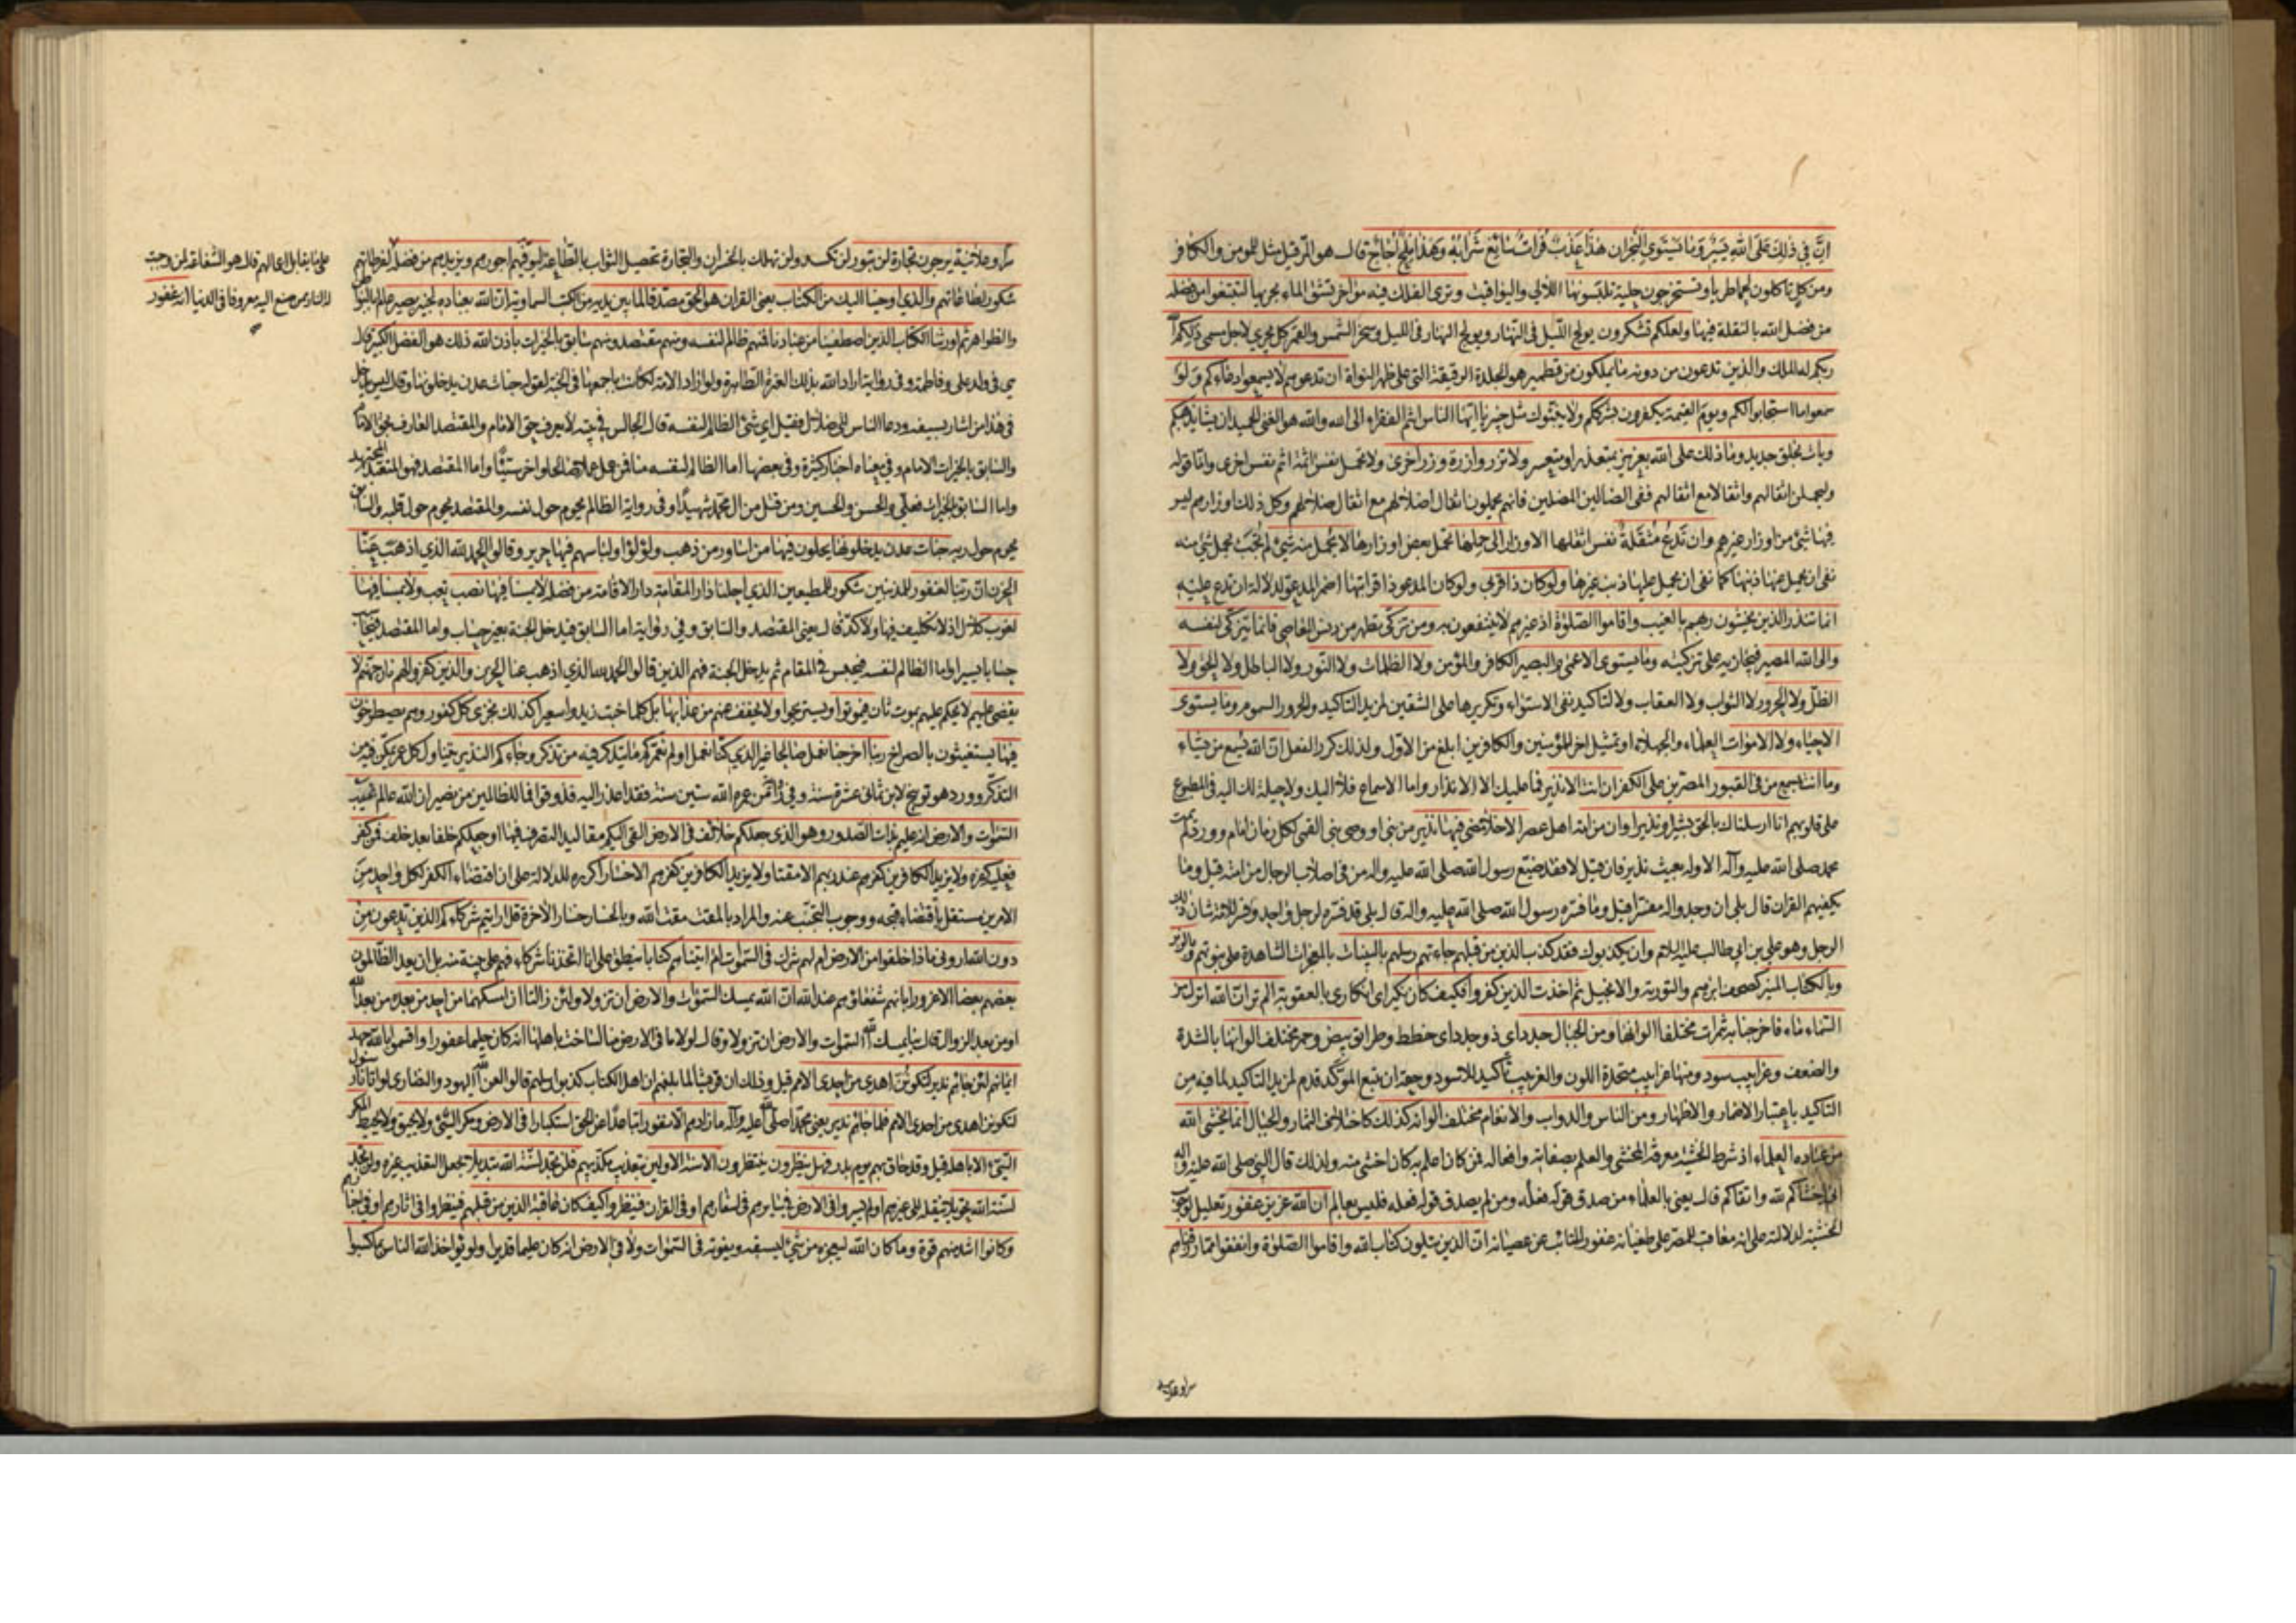 ان في ذلك على الله يسير وما يستوي البحران هذا عذب فرات سائغ شرابه وهذا ملح اجاج قال هو المر قيل مثل للمومن والكافر
ومن كل تاكلون لحما طريا وتستخرجون حلية تلبسونها اللآلي واليواقيت وترى الفلك فيه مواخر تشق الماء بجريها لتبتغوا من فضله
من فضل الله بالنقلة فيها ولعلكم تشكرون يولج الليل في النهار ويولج النهار في الليل وسخر الشمس والقمر كل يجري لاجل مسمى ذلكم الله
ربكم له الملك والذين تدعون من دونه ما يملكون من قطمير هو الجلدة الرقيقة التي على ظهر النواة ان تدعوهم لا يسمعوا دعاءكم ولو
سمعوا ما استجابوا لكم ويوم القيمة يكفرون بشرككم ولا ينبئك مثل خبير يا ايها الناس انتم الفقراء الى الله والله هو الغني الحميد ان يشا يذهبكم
ويات بخلق جديد وما ذلك على الله بعزيز بمتعذر او متعسر ولا تزر وازرة وزر اخرى ولا تحمل نفس اثمة اثم نفس اخرى واما قوله
وليحملن اثقالهم واثقالا مع اثقالهم ففي الضالين المضلين فانهم يحملون اثقال اضلالهم مع اثقال ضلالهم وكل ذلك اوزارهم ليس
فيها شئ من اوزار غيرهم وان تدع مثقلة نفس اثقلها الاوزار الى حملها تحمل بعض اوزارها لا يحمل منه شئ لم تجب بحمل شئ منه
نفى ان يحمل عنها ذنبها كما نفى ان يحمل عليها ذنب غيرها ولو كان ذا قربى ولو كان المدعو ذا قرابتها اضمر المدعو لدلالة ان تدع عليه
انما تنذر الذين يخشون ربهم بالغيب واقاموا الصلوة اذ غيرهم لا ينتفعون به ومن تزكى تطهر من دنس المعاصي فانما يتزكى لنفسه
والى الله المصير فيجازيه على تزكيته وما يستوي الاعمى والبصير الكافر والمؤمن ولا الظلمات ولا النور ولا الباطل ولا الحق ولا
الظل ولا الحرور لا الثواب ولا العقاب ولا لتاكيد نفي الاستواء وتكريرها على الشقين لمزيد التاكيد والحرور السموم وما يستوي
الاحياء ولا الاموات العلماء والجهلاء او تمثيل اخر للمؤمنين والكافرين ابلغ من الاول ولذلك كرر الفعل ان الله يسمع من يشاء
وما انت بمسمع من في القبور المصرين على الكفر ان انت الا نذير فما عليك الا الانذار واما الاسماع فلا اليك ولا حيلة لك اليه في المطبوع
على قلوبهم انا ارسلناك بالحق بشيرا ونذيرا وان من امة اهل عصر الا خلا مضى فيها نذير من نبي او وصي نبي القمي لكل زمان امام وورد لم يمت
محمد صلى الله عليه وآله الا وله بعيث نذير فان قيل لا فقد ضيع رسول الله صلى الله عليه واله من في اصلاب الرجال من امته قيل وما
يكفيهم القران قال بلى ان وجدوا له مفسرا قيل وما فسره رسول الله صلى الله عليه واله قال بلى قد فسره لرجل واحد وفسر للامة شان ذلك
الرجل وهو علي بن ابي طالب عليه السلام وان يكذبوك فقد كذب الذين من قبلهم جاءتهم رسلهم بالبينات بالمعجزات الشاهدة على نبوتهم وبالزبر
وبالكتاب المنير كصحف ابراهيم والتورية والانجيل ثم اخذت الذين كفروا فكيف كان نكير اي انكاري بالعقوبة الم تر ان الله انزل من
السماء ماء فاخرجنا به ثمرات مختلفا الوانها ومن الجبال جدد اي ذو جدد اي خطط وطرائق بيض وحمر مختلف الوانها بالشدة
والضعف وغرابيب سود ومنها غرابيب متحدة اللون والغربيب تأكيد للاسود وحقه ان يتبع المؤكد قدم لمزيد التاكيد لما فيه من
التاكيد باعتبار الاضمار والاظهار ومن الناس والدواب والانعام مختلف الوانه كذلك كاختلاف الثمار والجبال انما يخشى الله
من عباده العلماء اذ شرط الخشية معرفة المخشي والعلم بصفاته وافعاله فمن كان اعلم به كان اخشى منه ولذلك قال النبي صلى الله عليه واله
اني اخشاكم لله واتقاكم قال يعني بالعلماء من صدق قوله فعله ومن لم يصدق قوله فعله فليس بعالم ان الله عزيز غفور تعليل لوجوب
الخشية لدلالته على انه معاقب للمصر على طغيانه غفور للتائب عن عصيانه ان الذين يتلون كتاب الله واقاموا الصلوة وانفقوا مما رزقناهم
سرا وعلانية
سرا وعلانية يرجون تجارة لن تبور لن تكسد ولن تهلك بالخسران والتجارة تحصيل الثواب بالطاعة ليوفيهم اجورهم ويزيدهم من فضله انه غفور لفرطاتهم
شكور لطاعاتهم والذي اوحينا اليك من الكتاب يعني القران هو الحق مصدقا لما بين يديه من الكتب السماوية ان الله بعباده لخبير بصير عالم بالبواطن
والظواهر ثم اورثنا الكتاب الذين اصطفينا من عبادنا فمنهم ظالم لنفسه ومنهم مقتصد ومنهم سابق بالخيرات باذن الله ذلك هو الفضل الكبير قال
هي في ولد علي وفاطمة وفي رواية اراد الله بذلك العترة الطاهرة ولو اراد الامة لكانت باجمعها في الجنة لقوله جنات عدن يدخلونها وقال ليس يدخل
في هذا من اشار بسيفه ودعا الناس الى ضلال فقيل اي شئ الظالم لنفسه قال الجالس في بيته لا يعرف حق الامام والمقتصد العارف بحق الامام
والسابق بالخيرات الامام وفي معناه اخبار كثيرة وفي بعضها اما الظالم لنفسه منا فمن عمل عملا صالحا واخر سيئا واما المقتصد فهو المتعبد المجتهد
واما السابق بالخيرات فعلي والحسن والحسين ومن قتل من ال محمد شهيدا وفي رواية الظالم يحوم حول نفسه والمقتصد يحوم حول قلبه والسابق
يحوم حول ربه جنات عدن يدخلونها يحلون فيها من اساور من ذهب ولؤلؤا ولباسهم فيها حرير وقالوا الحمد لله الذي اذهب عنا
الحزن ان ربنا لغفور للمذنبين شكور للمطيعين الذي احلنا دار المقامة دار الاقامة من فضله لا يمسنا فيها نصب تعب ولا يمسنا فيها
لغوب كلال اذ لا تكليف فيها ولا كد قال يعني المقتصد والسابق وفي رواية اما السابق فيدخل الجنة بغير حساب واما المقتصد فيحاسب
حسابا يسيرا واما الظالم لنفسه فيحبس في المقام ثم يدخل الجنة فهم الذين قالوا الحمد لله الذي اذهب عنا الحزن والذين كفروا لهم نار جهنم لا
يقضى عليهم لا يحكم عليهم بموت ثان فيموتوا ويستريحوا ولا يخفف عنهم من عذابها بل كلما خبت زيدوا سعيرا كذلك نجزي كل كفور وهم يصطرخون
فيها يستغيثون بالصراخ ربنا اخرجنا نعمل صالحا غير الذي كنا نعمل اولم نعمركم ما يتذكر فيه من تذكر وجاءكم النذير يتناول كل عمر تمكن فيه من
التذكر وورد هو توبيخ لابن ثماني عشرة سنة وفي من عمره الله ستين سنة فقد اعذر اليه فذوقوا فما للظالمين من نصير ان الله عالم غيب
السموات والارض انه عليم بذات الصدور وهو الذي جعلكم خلائف في الارض القي اليكم مقاليد التصرف فيها او جعلكم خلفا بعد خلف فمن كفر
فعليه كفره ولا يزيد الكافرين كفرهم عند ربهم الا مقتا ولا يزيد الكافرين كفرهم الا خسارا كرره للدلالة على ان اقتضاء الكفر لكل واحد من
الامرين مستقل باقتضاء قبحه ووجوب التجنب عنه والمراد بالمقت مقت الله وبالخسار خسار الاخرة قل ارايتم شركاءكم الذين تدعون من
دون الله اروني ماذا خلقوا من الارض ام لهم شرك في السموات ام اتيناهم كتابا ينطق على انا اتخذنا شركاء فهم على بينة منه بل ان يعد الظالمون
بعضهم بعضا الا غرورا بانهم شفعاؤهم عند الله ان الله يمسك السموات والارض ان تزولا ولئن زالتا ان امسكهما من احد من بعده من بعد الله
او من بعد الزوال قال بنا يمسك الله السموات والارض ان تزولا وقال لولا ما في الارض منا لساخت باهلها انه كان حليما غفورا واقسموا بالله جهد
ايمانهم لئن جاءهم نذير ليكونن اهدى من احدى الامم قيل وذلك ان قريشا لما بلغهم ان اهل الكتاب كذبوا رسلهم قالوا لعن الله اليهود والنصارى لو اتانا رسول
لنكونن اهدى من احدى الامم فلما جاءهم نذير يعني محمدا صلى الله عليه وآله ما زادهم الا نفورا تباعدا عن الحق استكبارا في الارض ومكر السيئ ولا يحيق ولا يحيط المكر
السيئ الا باهله قيل وقد حاق بهم يوم بدر فهل ينظرون ينتظرون الا سنة الاولين بتعذيب مكذبيهم فلن تجد لسنة الله تبديلا بجعل التعذيب غيره ولن تجد
لسنة الله تحويلا بنقله الى غيرهم اولم يسيروا في الارض قيل سيرهم في اسفارهم او في القران فينظروا كيف كان عاقبة الذين من قبلهم فينظروا في اثارهم او في اخبارهم
وكانوا اشد منهم قوة وما كان الله ليعجزه من شئ ليسبقه ويفوته في السموات ولا في الارض انه كان عليما قديرا ولو يؤاخذ الله الناس بما كسبوا
قال هو الشفاعة لمن وجبت
له النار ممن صنع اليه معروفا في الدنيا انه غفور